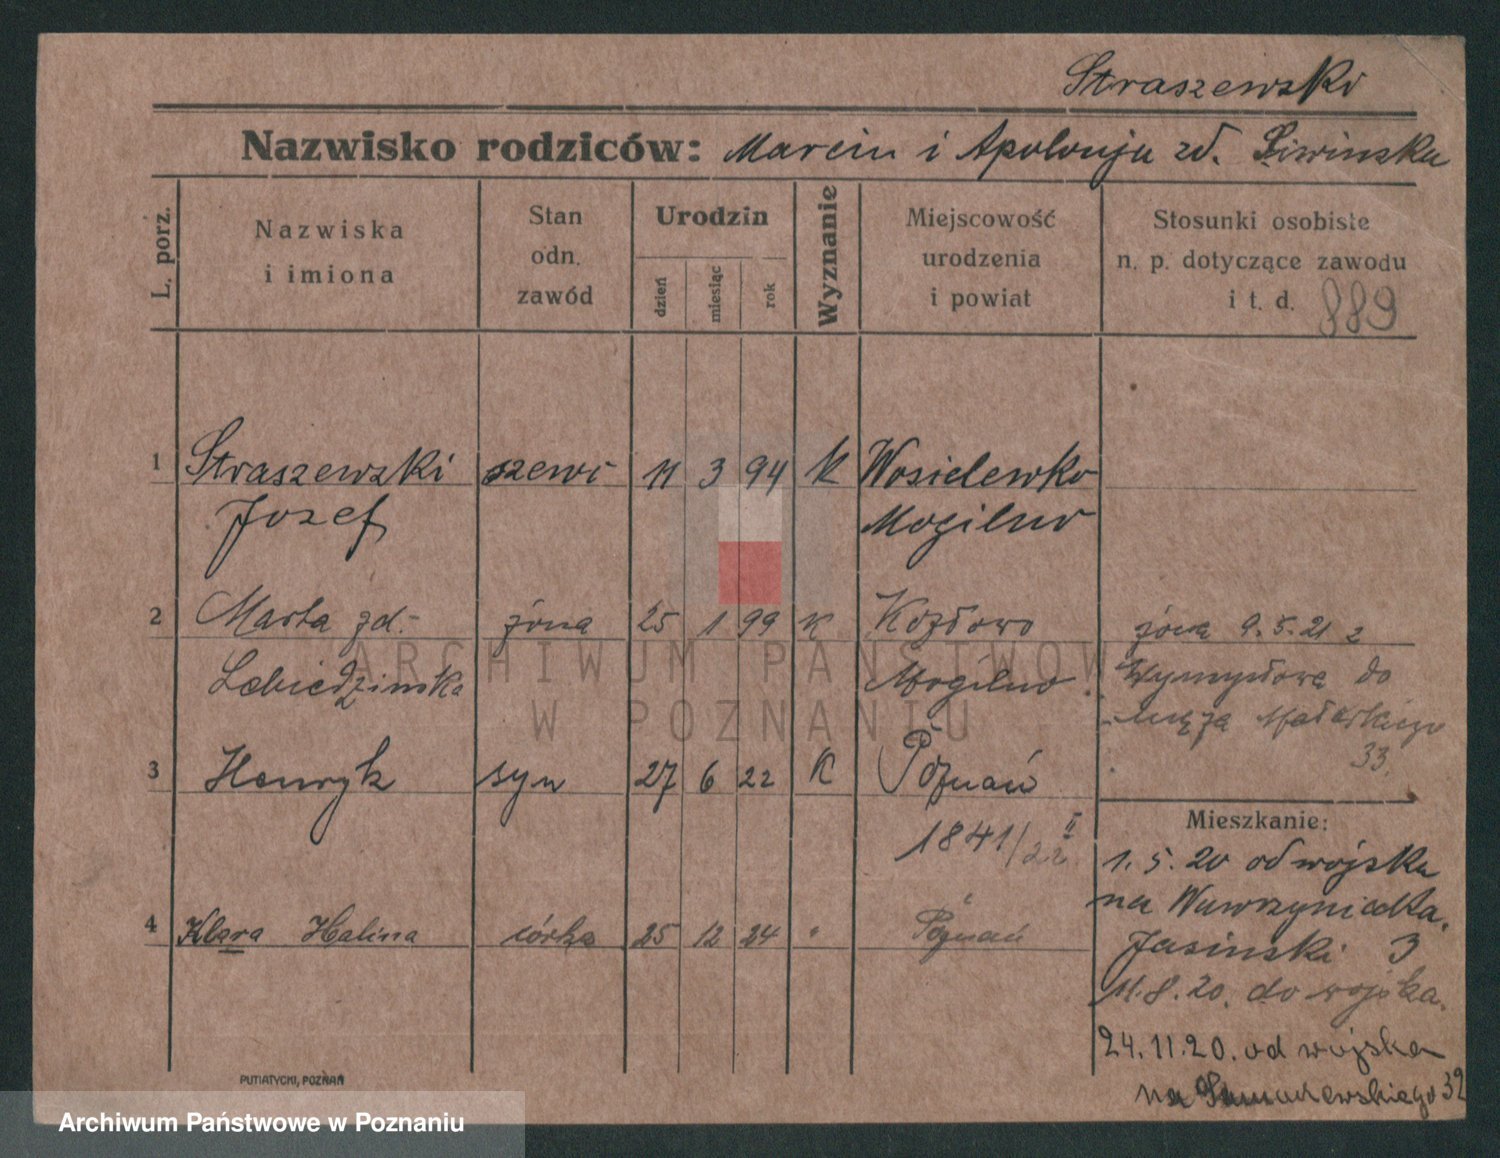 Straszewski
Nazwisko rodziców: Marcin i Apolonja zd. Liwinska
L. porz.
Nazwiska
i imiona
Stan
odn.
zawód
Urodzin
dzień
miesiąc
rok
Wyznanie
Miejscowość
urodzenia
i powiat
Stosunki osobiste
n. p. dotyczące zawodu
i t. d. 889
1 Straszewski szewc 11 3 94 K Wosielewko
Jozef Mogilno
2 Marta zd. żona 25 1 99 K Kozłowo żona 9.5.21 z
Lebiedzinska Mogilno Wymysłowa do
męża Małeckiego
33.
3 Henryk syn 27 6 22 K Poznań
1841/22 II
Mieszkanie:
1.5.20 od wojska
na Wawrzyniaka
4 Klara Halina córka 25 12 24 " Poznań
Jasinski 3
11.8.20. do wojska.
24.11.20. od wojska
na 32
PUTIATYCKI, POZNAŃ
ARCHIWUM PAŃSTWOW
W POZNANIU
Archiwum Państwowe w Poznaniu